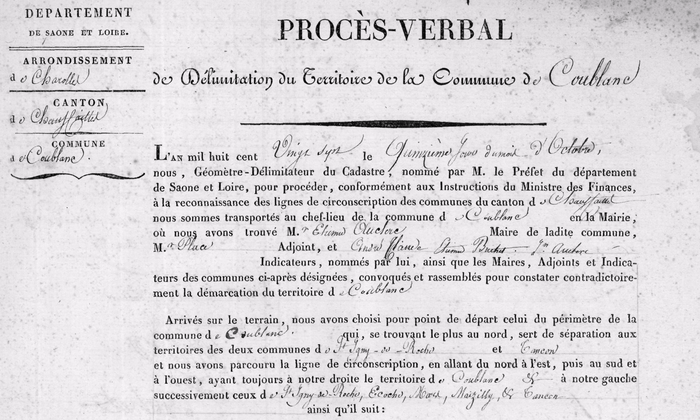 DÉPARTEMENT
DE SAONE ET LOIRE.
ARRONDISSEMENT
de Charolles
CANTON
de Chauffailles
COMMUNE
de Coublanc.
PROCÈS-VERBAL
de Délimitation du Territoire de la Commune de Coublanc
L'AN mil huit cent Vingt Sept le Quinzième Jour du mois d'Octobre,
nous, Géomètre-Délimitateur du Cadastre, nommé par M. le Préfet du département
de Saone et Loire, pour procéder, conformément aux Instructions du Ministre des Finances,
à la reconnaissance des lignes de circonscription des communes du canton de Chauffailles
nous sommes transportés au chef-lieu de la commune de Coublanc en la Mairie,
où nous avons trouvé M.r Etienne Auclerc Maire de ladite commune,
M.r Place Adjoint, et
Indicateurs, nommés par lui, ainsi que les Maires, Adjoints et Indica-
teurs des communes ci-après désignées, convoqués et rassemblés pour constater contradictoire-
ment la démarcation du territoire de Coublanc
Arrivés sur le terrain, nous avons choisi pour point de départ celui du périmètre de la
commune de Coublanc. qui, se trouvant le plus au nord, sert de séparation aux
territoires des deux communes de St Igny-de-Roche et Tancon
et nous avons parcouru la ligne de circonscription, en allant du nord à l'est, puis au sud et
à l'ouest, ayant toujours à notre droite le territoire de Coublanc & à notre gauche
successivement ceux de St Igny de Roche, Ecoche, Mars, Maizilly, & Tancon
ainsi qu'il suit: